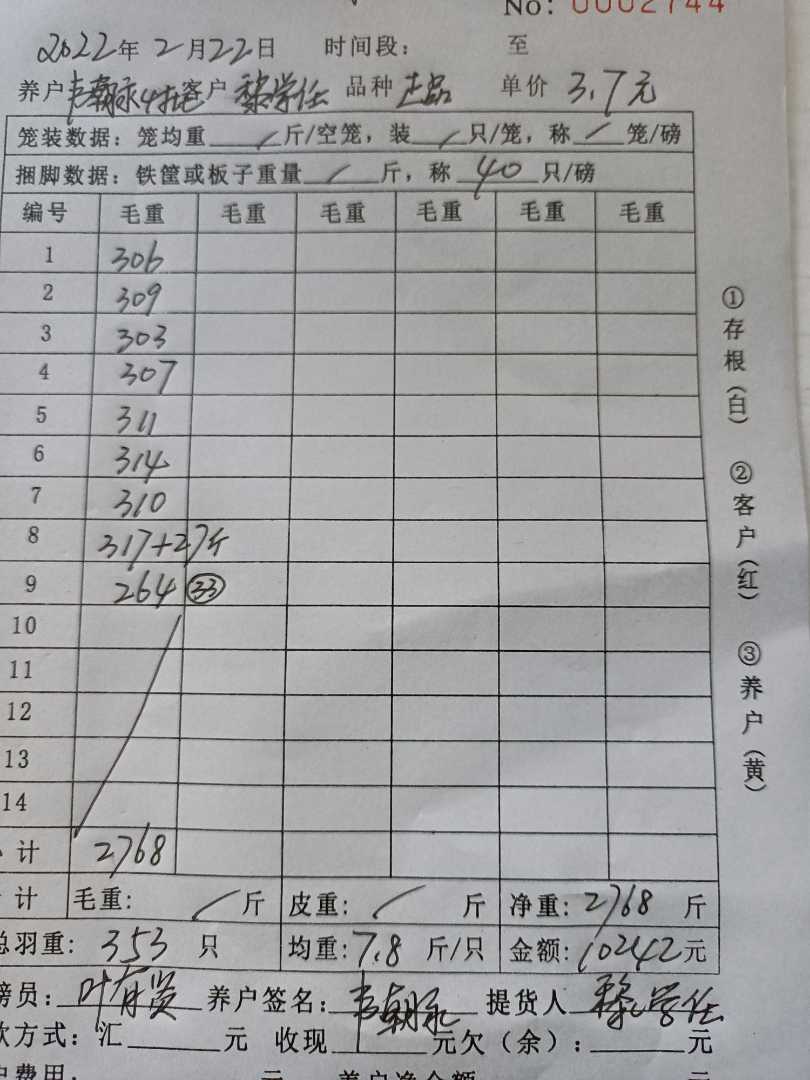 No: 0002744
2022年2月22日 时间段: 至
养户韦朝永 客户黎学任 品种正品 单价 3.7元
笼装数据:笼均重 / 斤/空笼,装 / 只/笼,称 / 笼/磅
捆脚数据:铁筐或板子重量 / 斤,称 40 只/磅
编号 毛重 毛重 毛重 毛重 毛重 毛重
1 306
2 309
3 303
4 307
5 311
6 314
7 310
8 317+27斤
9 264 33
10
11
12
13
14
计 2768
计 毛重: / 斤 皮重: / 斤 净重: 2768 斤
总羽重: 353 只 均重: 7.8 斤/只 金额: 10242元
磅员: 叶有贤 养户签名: 韦朝永 提货人 黎学任
款方式:汇 元 收现 元欠(余): 元
户费用: 元 养户净金额 元
①存根(白) ②客户(红) ③养户(黄)